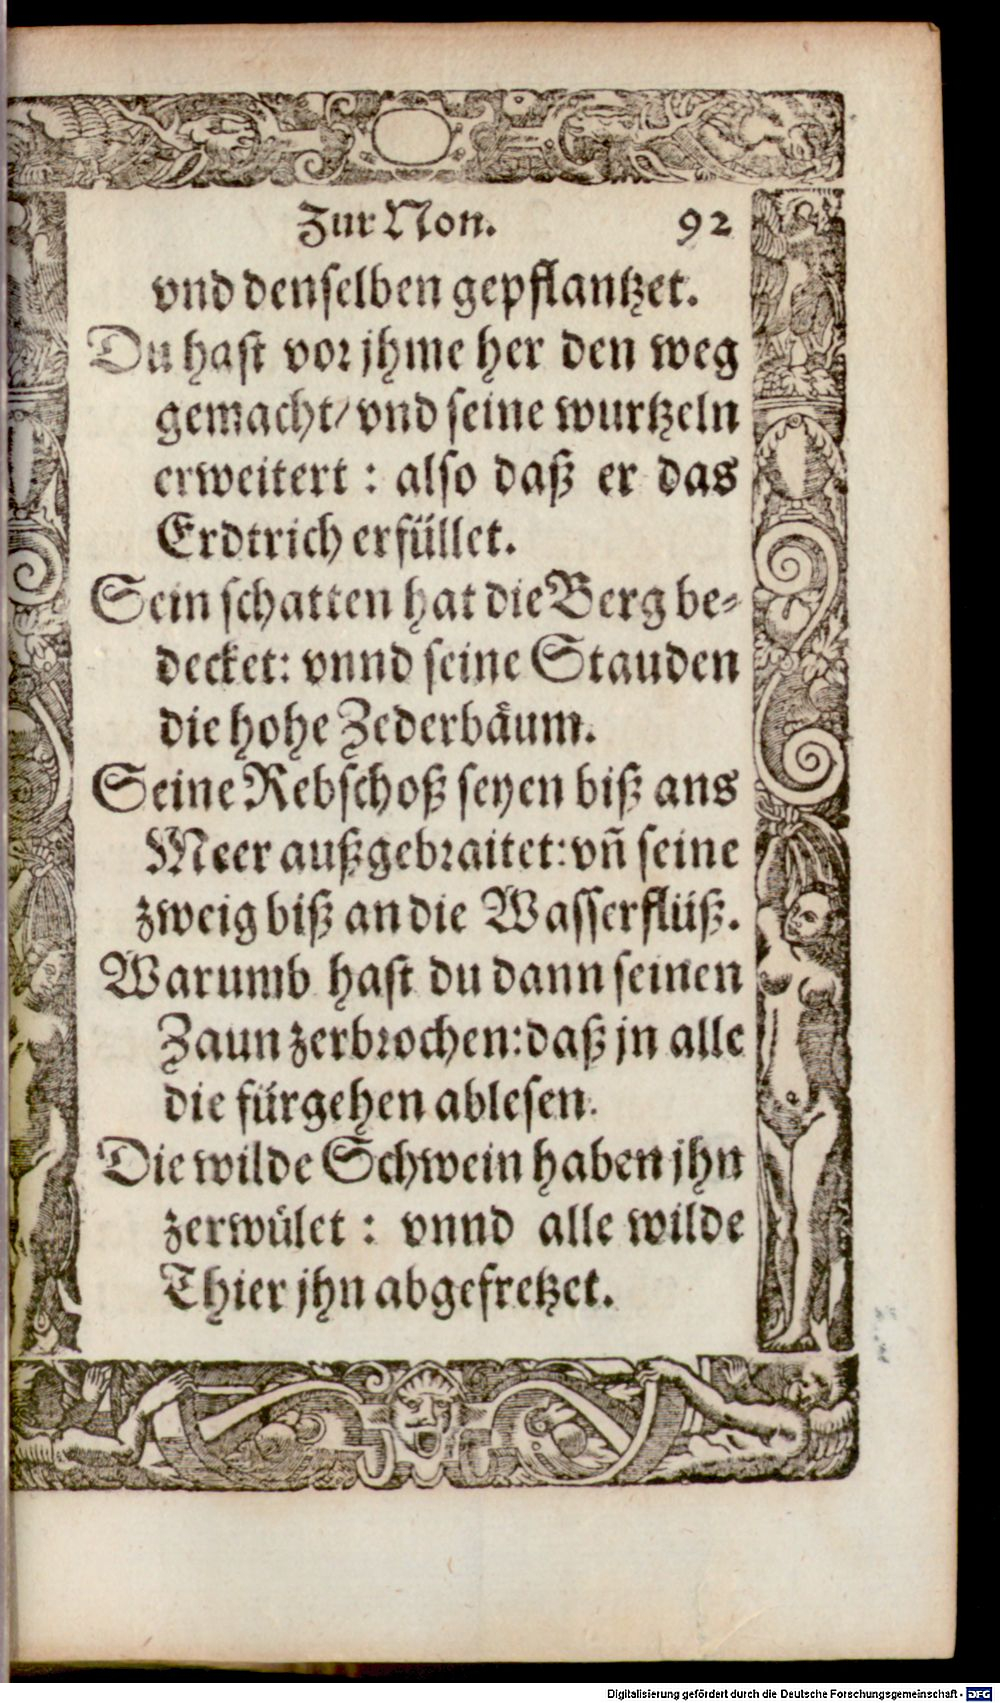 Zur Non. 92
vnd denselben gepflantzet.
Du hast vor jhme her den weg
gemacht/ vnd seine wurtzeln
erweitert : also daß er das
Erdtrich erfüllet.
Sein schatten hat die Berg be-
decket: vnnd seine Stauden
die hohe Zederbäum.
Seine Rebschoß seyen biß ans
Meer außgebraitet: vñ seine
zweig biß an die Wasserflüß.
Warumb hast du dann seinen
Zaun zerbrochen: daß jn alle
die fürgehen ablesen.
Die wilde Schwein haben jhn
zerwület : vnnd alle wilde
Thier jhn abgefretzet.
Digitalisierung gefördert durch die Deutsche Forschungsgemeinschaft - DFG